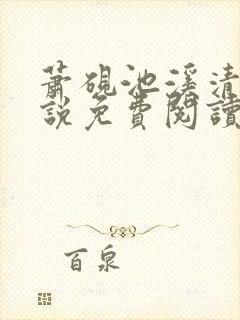 蕭硯池溪清
說免費閱讀
百泉